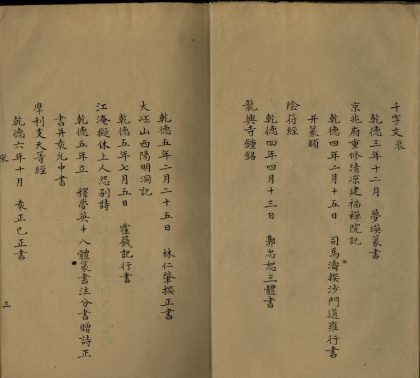 千字文裘
乾德三年十二月 夢瑛篆書
京兆府重修清凉建福禪院記
乾德四年二月十五日 司馬濤撰沙門道雍行書
并篆額
陰符經
乾德四年四月十三日 郭忠恕三體書
龍興寺鍾銘
乾德五年二月二十五日 林仁肇撰正書
大岯山西陽明洞記
乾德五年七月五日 霍 記行書
江淹擬休上人怨别詩
乾德五年立 釋夢英十八體篆書注分書贈詩正
書并袁允中書
摩利支天等經
乾德六年十月 袁正己正書
宋
三